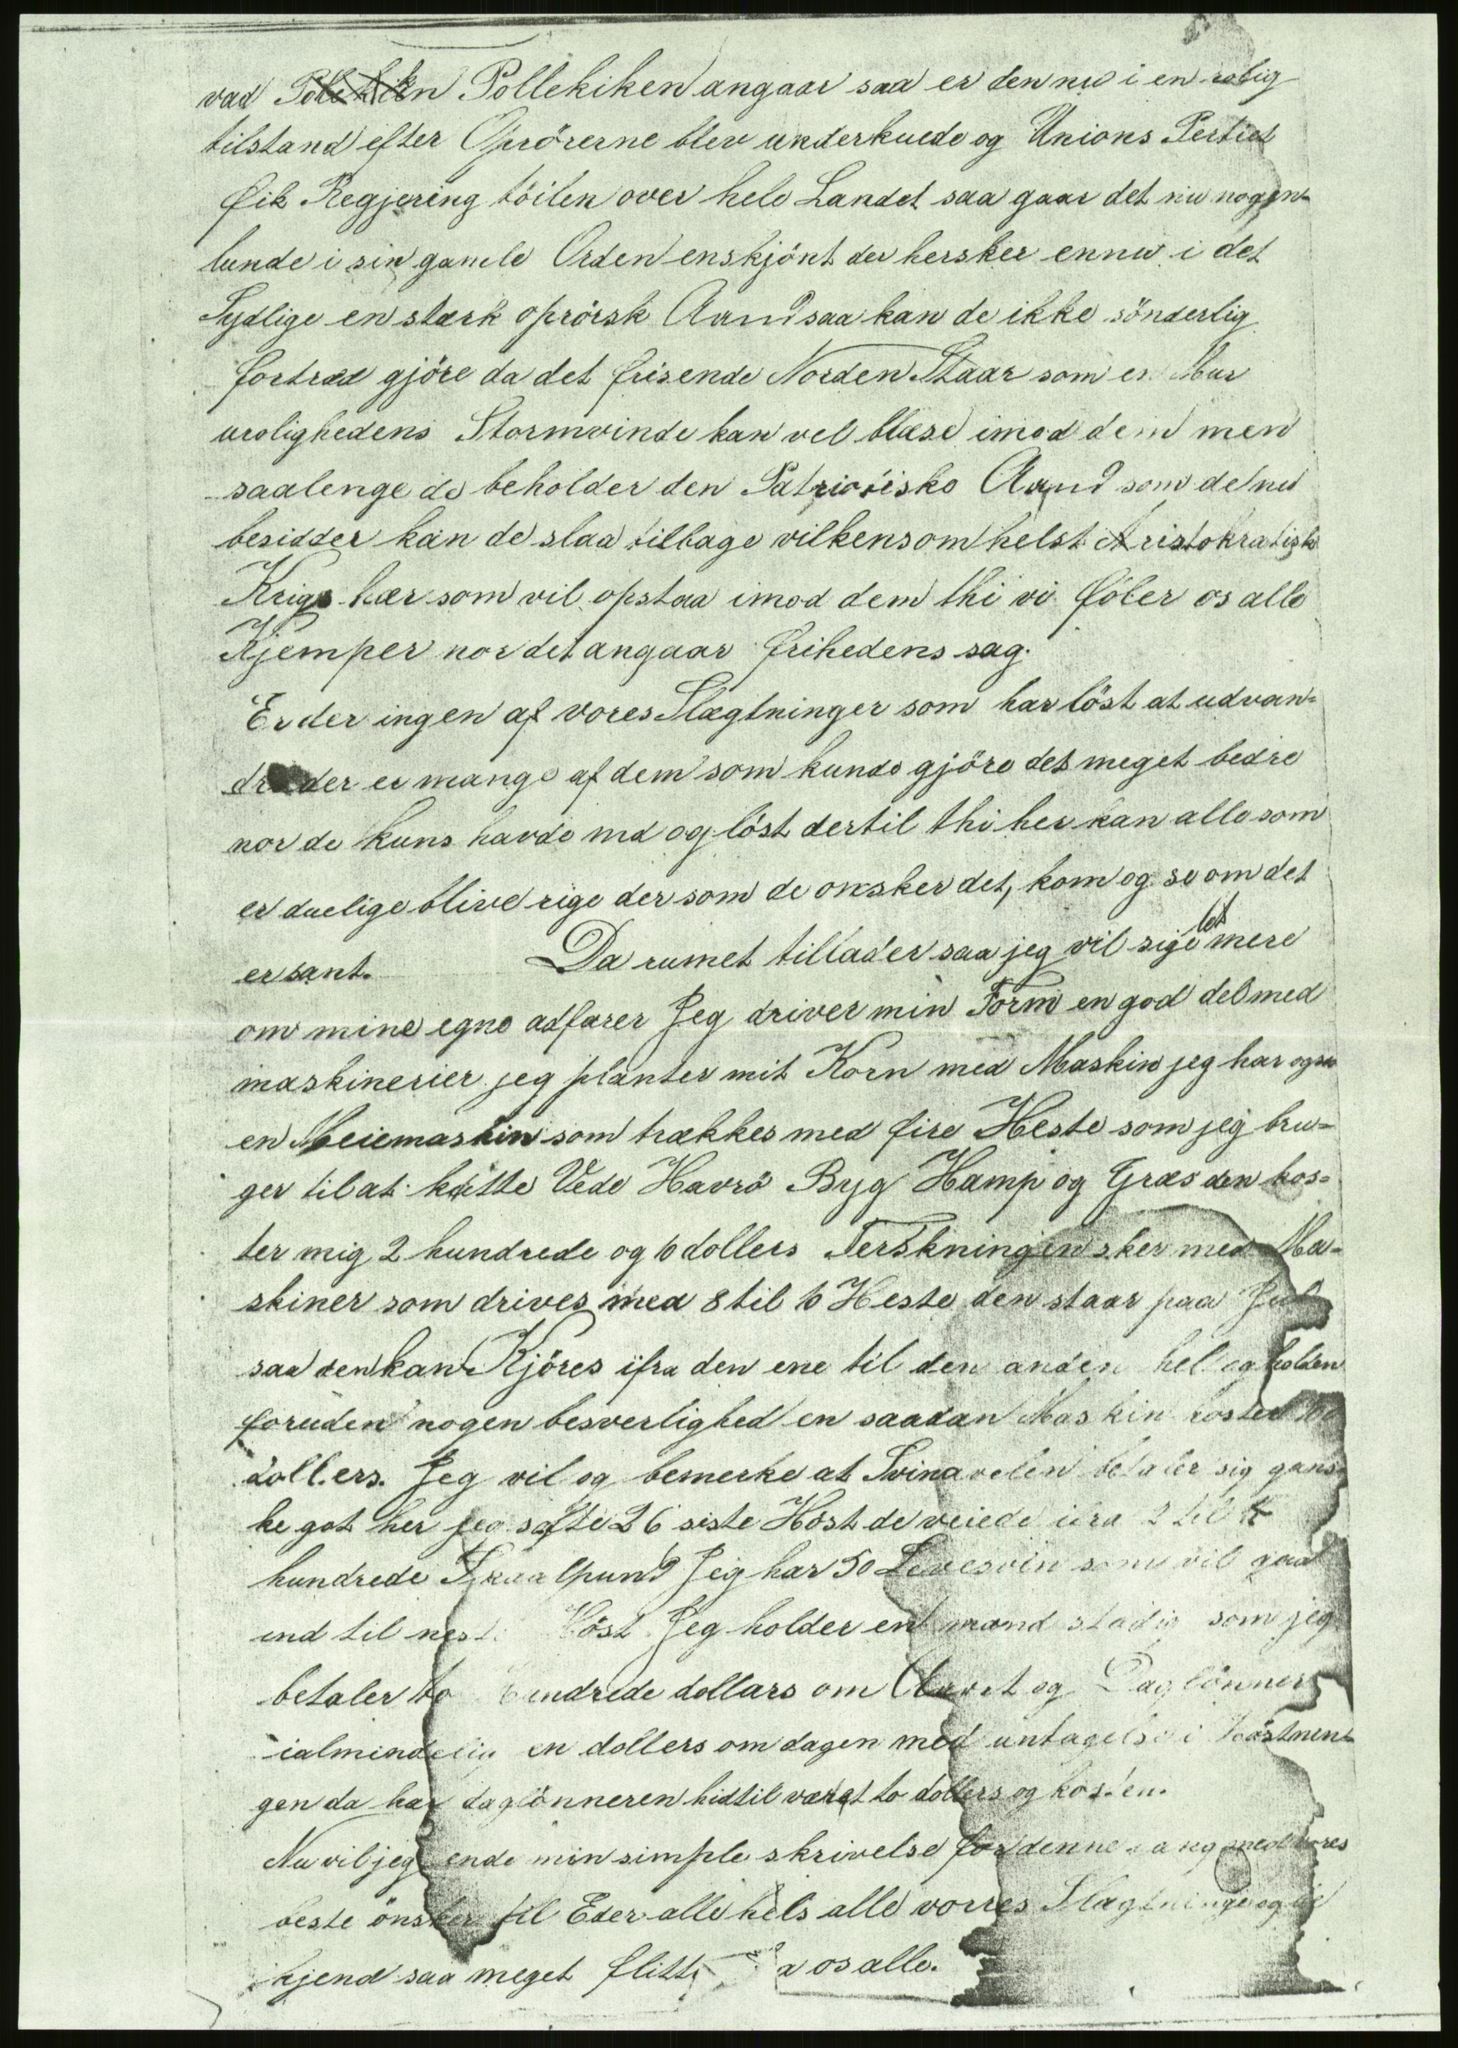 vad Pollekiken Pollekiken angaar saa er den nu i en rolig
tilstand efter Oprörerne blev underkuede og Unions Pertiet
fik Regjering töilen over hele Landet saa gaar det nu nogen-
lunde i sin gamle Orden enskjönt der hersker ennu i det
Sydlige en stærk oprörsk Aand saa kan de ikke sönderlig
fortræd gjöre da det frisende Norden Staar som en Mur
urolighedens Stormvinde kan vel blæse imod dem men
saalenge de beholder den Patriotiske Aand som de nu
besidder kan de slaa tilbage vilkensomhelst Aristokratisk
Krigs hær som vil opstaa imod dem thi vi föler os alle
Kjemper nor det angaar frihedens sag.
Er der ingen af vores Slægtninger som har löst at udvan-
dre der er mange af dem som kunde gjöre det meget bedre
nor de kuns havde md og löst dertil thi her kan alle som
er duelige blive rige der som de onsker det, kom og se om det
er sant. Da rumet tillader saa jeg vil sige let mere
om mine egne adfærer Jeg driver min Form en god del med
maskinerier jeg planter mit Korn med Maskin jeg har ogsaa
en Meiemaskin som trækkes med fire Heste som jeg bru-
ger til at kutte Vede Havre Byg Hamp og Græs den kos-
ter mig 2 hundrede og 10 dollers Terskningen sker med Ma-
skiner som drives med 8 til 10 Heste den staar paa Jul
saa den kan Kjöres ifra den ene til den anden hel og holden
foruden nogen besverlighed en saadan Maskin koster
dollers. Jeg vil og bemerke at Svinavelen betaler sig gans-
ke got her jeg solte 26 siste Höst de veiede ifra 2 til 4
hundrede Skaalpund Jeg har 50 Levesvin som vil gaa
ind til nest Höst Jeg holder en mand stadig som jeg
betaler to hundrede dollars om Aaret og Daglönner
ialmindelig en dollers om dagen med untagelse i Höstnen-
gen da har daglönneren hidtil været to dollers og kosten.
Nu vil jeg ende min simple skrivelse for denne gang med vores
beste önsker til Eder alle hels alle vorres Slægtninge og
kjend saa meget flitti os alle.